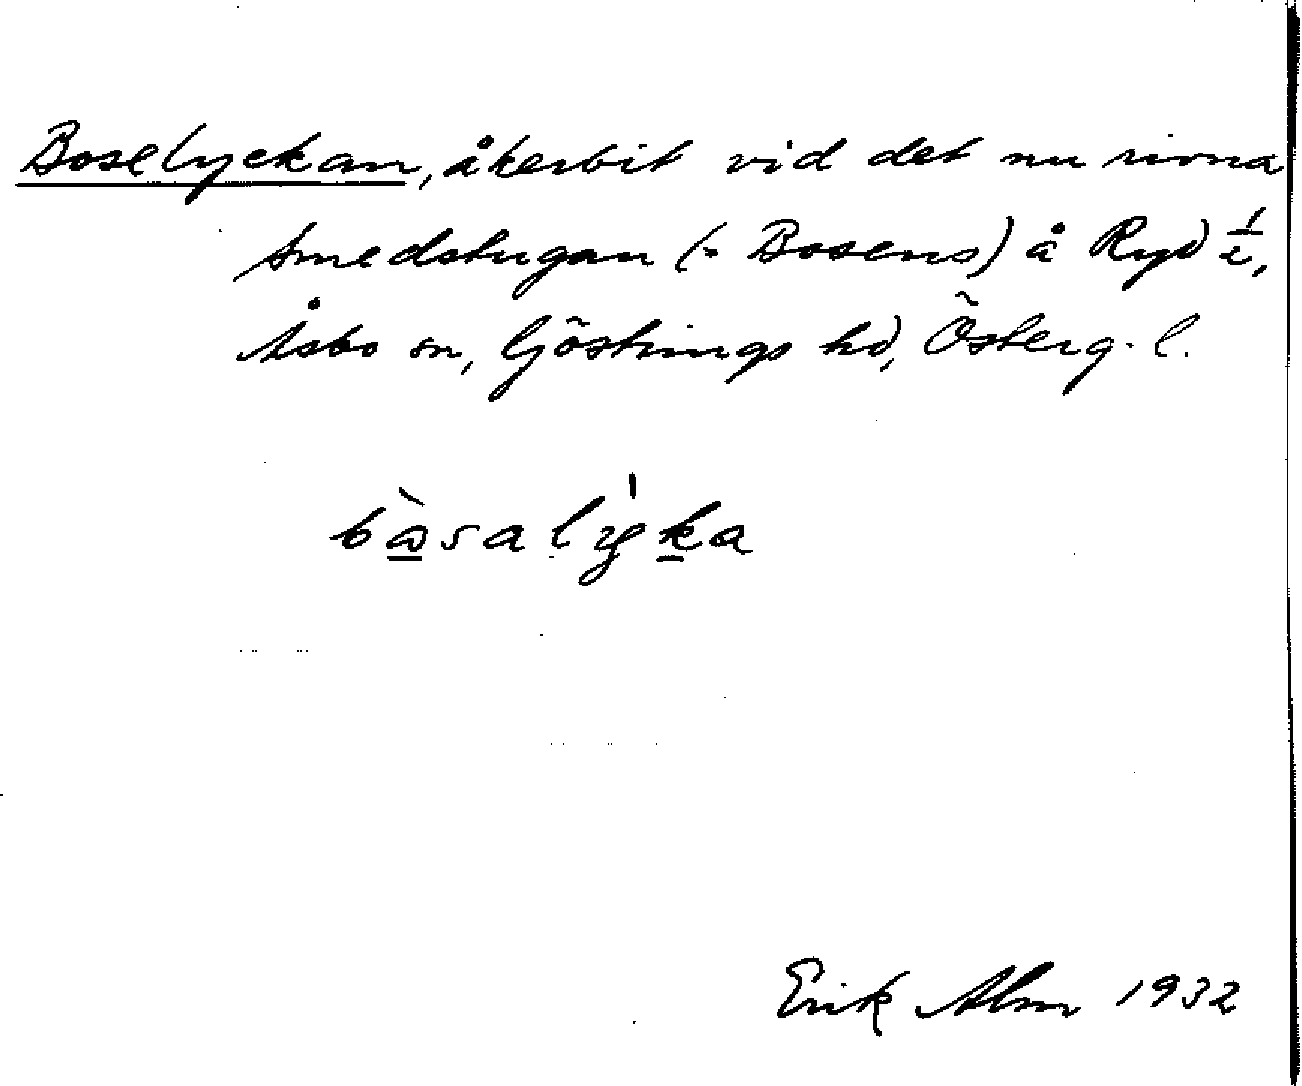 Boselyckan, åkerbit vid det nu rivna
Smedstugan (= Bosens) å Ryd 1/2,
Åsbo sn, Göstrings hd, Österg. l.
bɷ̀salyka
Erik Alm 1932